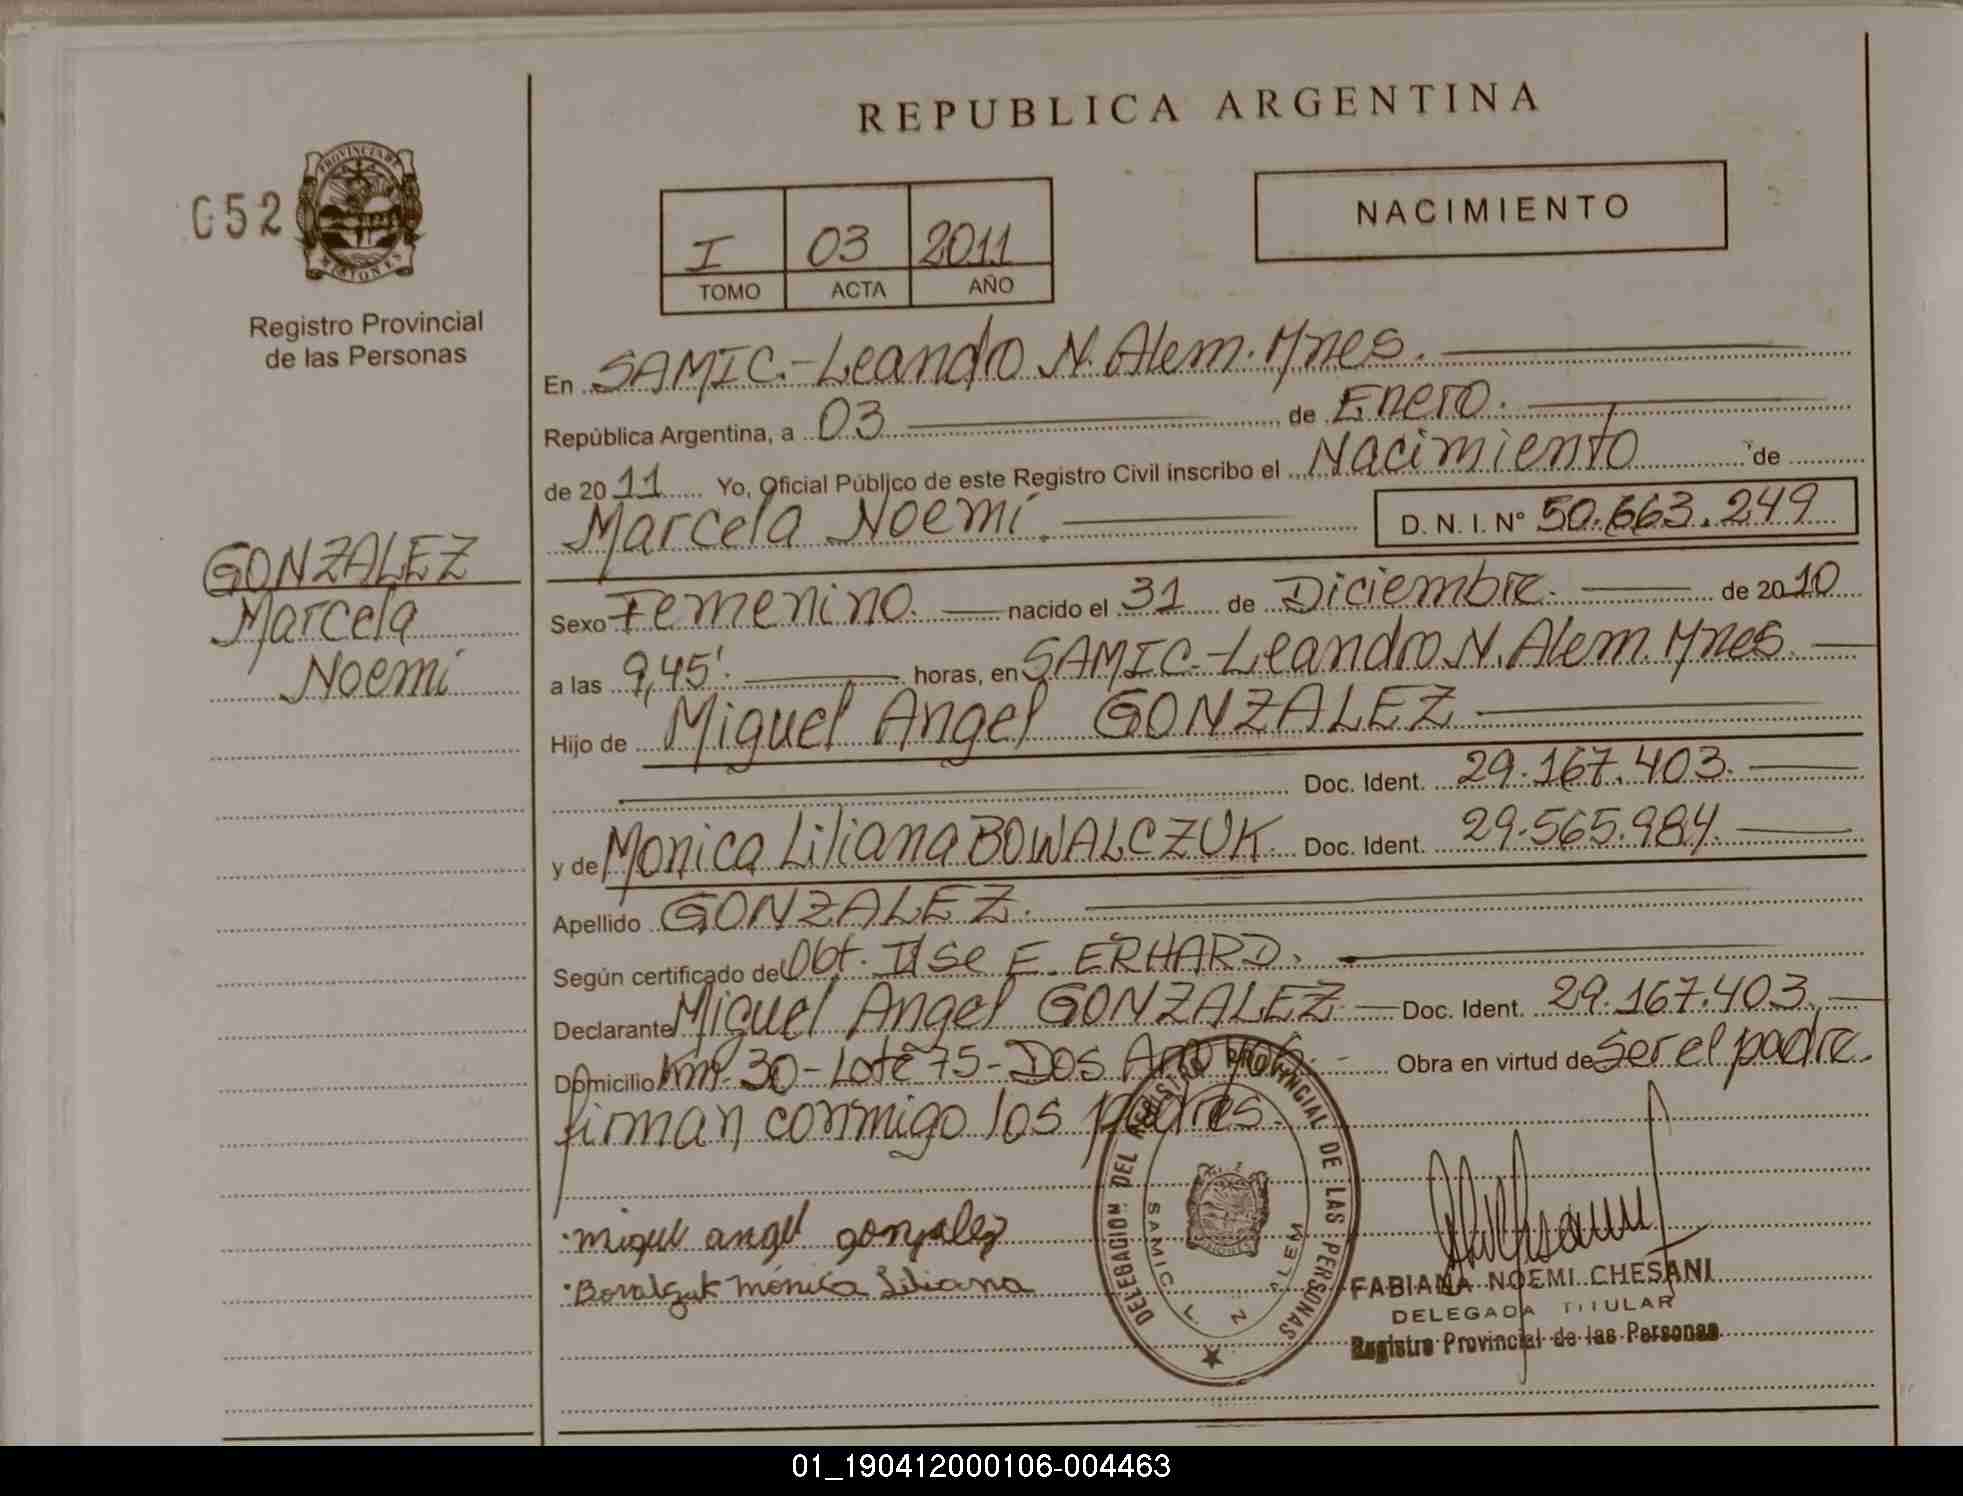 REPUBLICA ARGENTINA
052
PROVINCIA DE
MISIONES
Registro Provincial
de las Personas
I 03 2011
TOMO ACTA AÑO
NACIMIENTO
En SAMIC.-Leandro N. Alem. Mnes.
República Argentina, a 03 de Enero.
de 2011 Yo, Oficial Público de este Registro Civil inscribo el Nacimiento de
Marcela Noemí. D. N. I. N° 50.663.249
GONZALEZ
Marcela
Noemí
Sexo Femenino. nacido el 31 de Diciembre. de 2010
a las 9,45'. horas, en SAMIC.-Leandro N. Alem. Mnes.
Hijo de Miguel Angel GONZALEZ
Doc. Ident. 29.167.403.
y de Monica Liliana BOWALCZUK. Doc. Ident. 29.565.984.
Apellido GONZALEZ.
Según certificado de Obt. Ilse E. ERHARD.
Declarante Miguel Angel GONZALEZ Doc. Ident. 29.167.403.
Domicilio Km. 30-Lote 75-Dos Arroyos. Obra en virtud de Ser el padre.
firman conmigo los padres.
miguel angel gonzalez
Bovalczuk Mónica Liliana
DELEGACION DEL REGISTRO PROVINCIAL DE LAS PERSONAS
SAMIC L N ALEM
FABIANA NOEMI CHESANI
DELEGADA TITULAR
Registro Provincial de las Personas
01_190412000106-004463